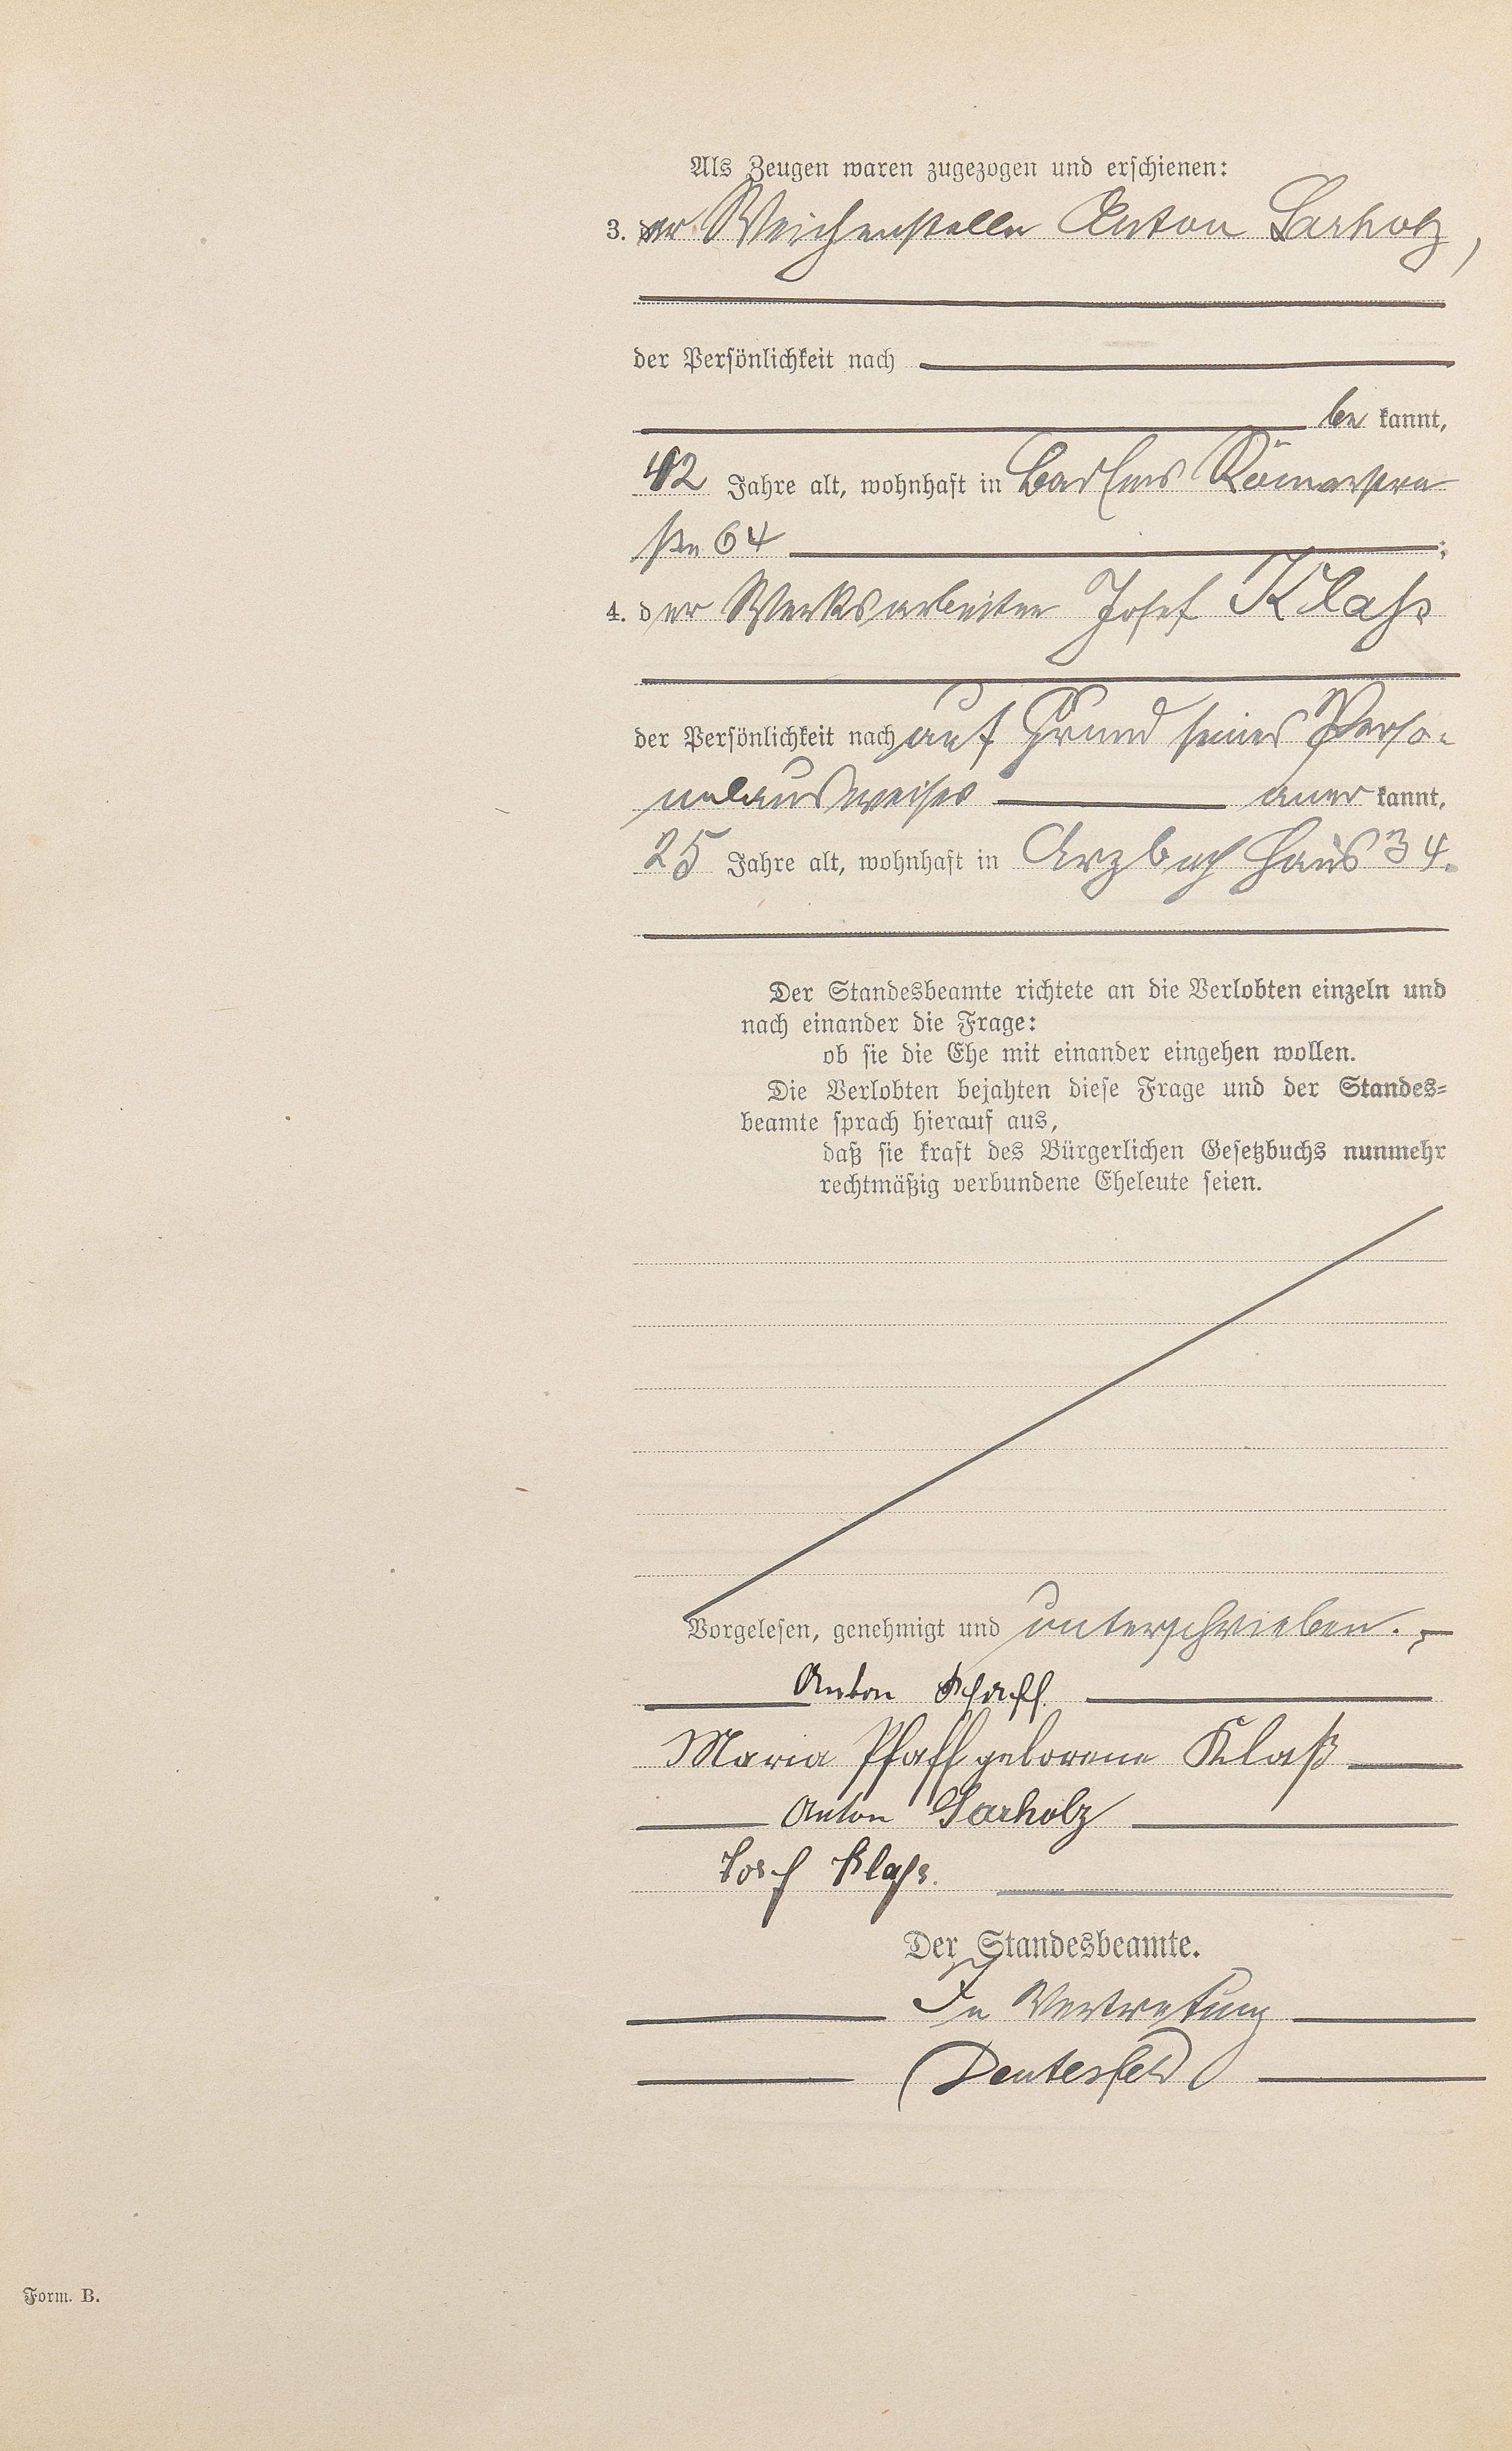 Als Zeugen waren zugezogen und erschienen:
3. der Weichensteller Anton Sarholz,
der Persönlichkeit nach
be kannt,
42 Jahre alt, wohnhaft in Bad Ems Römerstra
ße 64 ;
4. der Werksarbeiter Josef Klass
der Persönlichkeit nach auf Grund seines Perso-
nalausweises aner kannt,
25 Jahre alt, wohnhaft in Arzbach Haus 34.
Der Standesbeamte richtete an die Verlobten einzeln und
nach einander die Frage:
ob sie die Ehe mit einander eingehen wollen.
Die Verlobten bejahten diese Frage und der Standes=
beamte sprach hierauf aus,
daß sie kraft des Bürgerlichen Gesetzbuchs nunmehr
rechtmäßig verbundene Eheleute seien.
Vorgelesen, genehmigt und unterschrieben.
Anton Pfaff.
Maria Pfaff geborene Klaß
Anton Sarholz
Josef Klass.
Der Standesbeamte.
In Vertretung
Deutesfeld
Form. B.